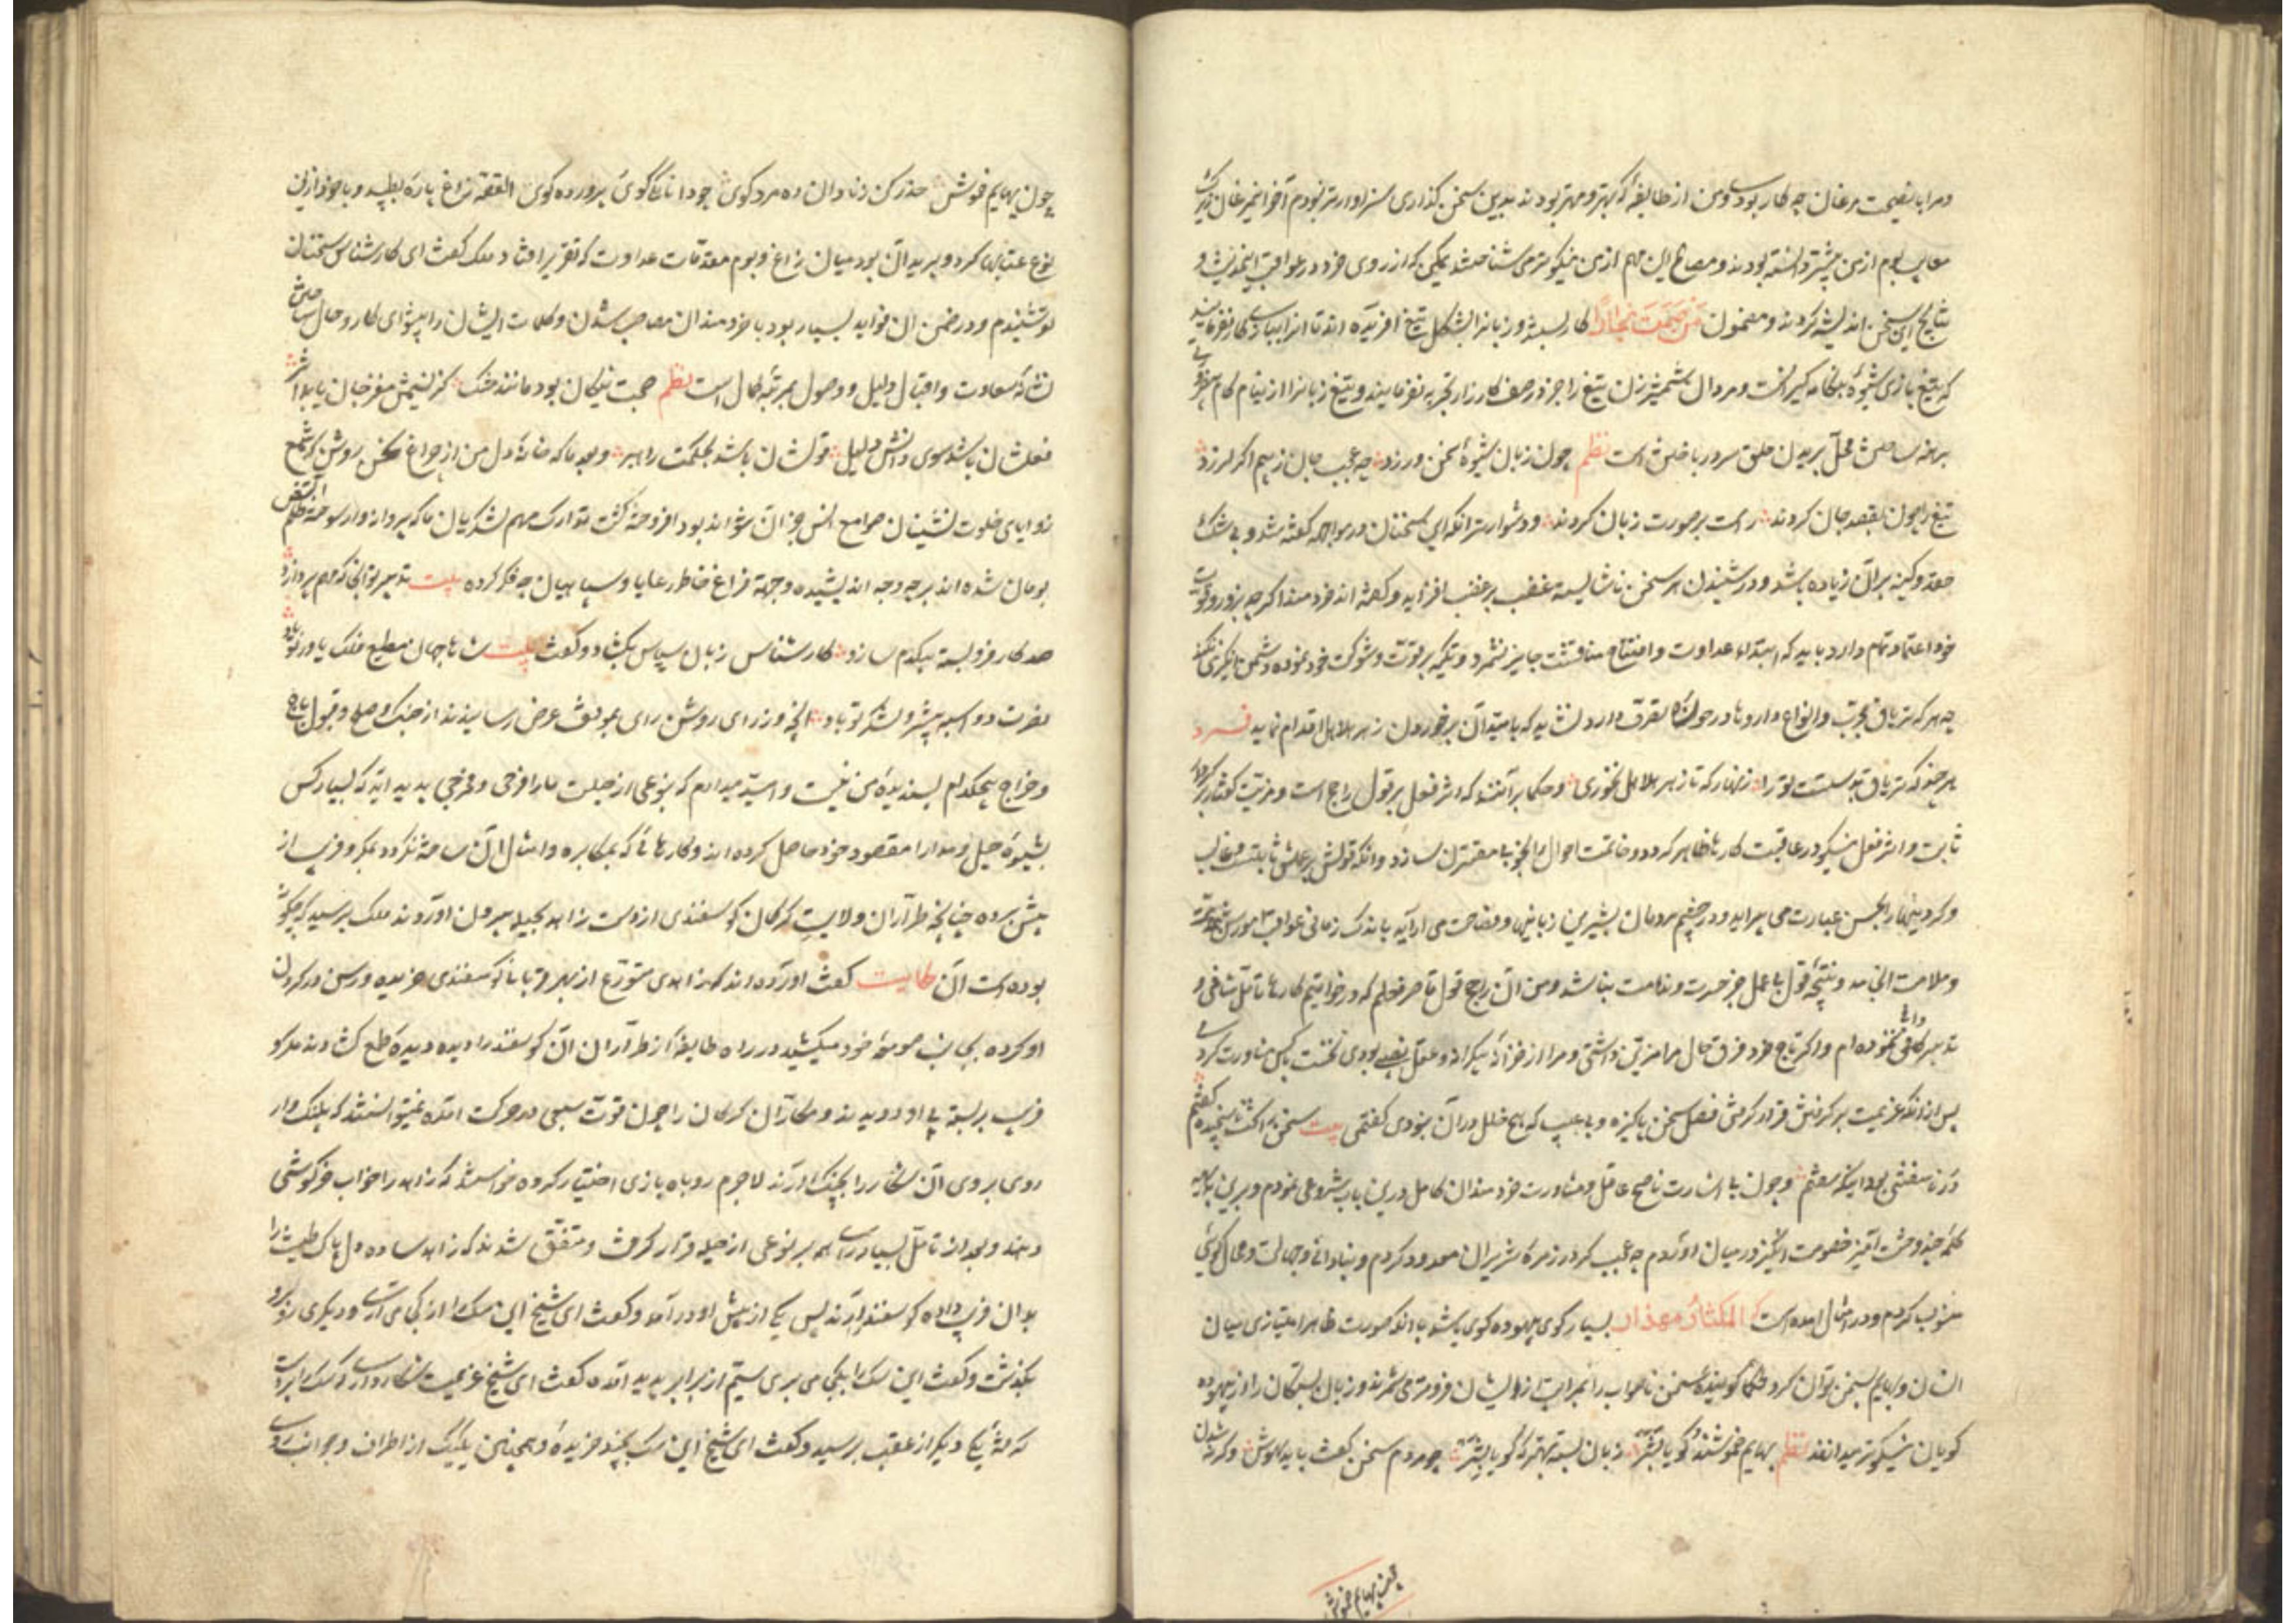 ومرا با نصیحت مرغان چه کار بود و من از طایفهٔ که بهتر و مهتر بودند بدین سخن گذاری سزاوارتر نبودم آخر این مرغان زیرک
معایب بوم از من پیشتر دانسته بودند و مصالح این مهم از من نیکوتر می شناختند لیکن که از روی خرد در عواقب اندیشه و
نتایج این سخن اندیشه کردند و مضمون مَن صَمَتَ نَجا را کار بستند و زبانرا بشکل تیغ آفریده اند تا انرا ببازی کار نفرمایند
که تیغ بازی شیوهٔ هنگامه گیرانست و مردان شمشیرزن تیغ را جز در صف کارزار تجربه نفرمایند و تیغ زبانرا از نیام کام
برهنه ساختن محل بریدن حلق سرور باختن است نظم چون زبان شیوهٔ سخن ورزد چه عجب جان ز بیم اگر لرزد
تیغ را چون بقصد جان کردند راست بر صورت زبان کردند و دشوارتر انکه این سخنان در مواجهه گفته شد و بی شک
حقد و کینه بر آن زیاده باشد و در شنیدن هر سخن ناشایسته غضب بر غضب افزاید و گفته اند خردمند اگر چه بزور و قوت
خود اعتماد تمام دارد باید که ابتداء عداوت و افتتاح مناقشت جایز نشمرد و تکیه بر قوت و شوکت خود نموده دشمن انگیزی نکند
چه هر که تریاق مجرب و انواع داروها در حوزهٔ تصرف دارد نشاید که بامید آن بر خوردن زهر هلاهل اقدام نماید فرد
هر چند که تریاق بدستست ترا زنهار که تا زهر هلاهل نخوری و حکما بر آنند که اثر فعل بر قول راجح است و مزیت کردار بر گفتار
ثابت و اثر فعل نیکو در عاقبت کارها ظاهر گردد و خاتمت احوال را بخوبی مقترن سازد و انکه قولش بر عمل ثابت و غالب
و کردنیها را بحسن عبارت می سراید و در چشم مردمان بشیرین زبانی و فصاحت می اراید باندک زمانی عواقب امورش بمذمت
و ملامت انجامد و نتیجهٔ قول بی عمل جز حسرت و ندامت نباشد و من ان راجح قول قاصر فعلم که در خواتیم کارها تامل شافی و
تدبیر کافی ننموده ام و اگر تاج خرد فرق حال مرا مزین داشتی و مرا از خزانهٔ بیکرانه عقل نصیبی بودی نخست با کس مشاورت کردمی
پس از انکه عزیمت بر گفتنش قرار گرفتی فصل سخن پاکیزه و بی عیب که هیچ خلل در آن نبودی گفتمی بیت سخن تا نسنجیده گفتم
دُر ناسفتنی بود اینک سفتم و چون بی اشارت ناصح عاقل و مشاورت خردمندان کامل درین باب شروعی نمودم و برین بدیهه
کلمهٔ چند وحشت آمیز خصومت انگیز در میان آوردم چه عجب گر در زمرهٔ شریران معدود گردم و بنادانی و جهالت و محال گوئی
منسوب گردم و در امثال آمده است که المکثارُ مهذار بسیار گوی بیهوده گوی باشد با آنکه صورت ظاهر امتیازی میان
انسان و بهایم بسخن توان کرد حکما گویندهٔ سخن ناصواب را بمراتب از ایشان فروتر می شمرند و زبان بستگان را از بیهوده
گویان نیکوتر میدانند نظم بهایم خموشند و گویا بشر زبان بسته بهتر که گویا بشر چو مردم سخن گفت باید بهوش و گرنه شدن
چون بهایم خموش
چون بهایم خموش حذر کن ز نادان ده مرده گوی چو دانا یکی گوی پرورده گوی القصه زاغ پارهٔ بطپید و با خود ازین
نوع عتابها کرد و بپرید آن بود میان زاغ و بوم مقدمات عداوت که تقریر افتاد ملک گفت ای کارشناس سخنان
تو شنیدم و در ضمن ان فواید بسیار بود با خردمندان مصاحب شدن و کلمات ایشان را پیشوای کار و حال ساختن
نشانهٔ سعادت و اقبال و دلیل وصول بمرتبهٔ کمال است نظم صحبت نیکان بود مانند مشک کز نسیمش مغز جان یابد اثر
فعلشان باشد سوی دانش دلیل قولشان باشد بحکمت راهبر و بعد ما که خانهٔ دل من از چراغ سخن روشن گر شمع
زوایای خلوت نشینان صوامع انس جز آن نتواند بود افروخته گشت تدارک مهم لشکریان ما که پروانه وار سوخته آتش ظلم
بومان شده اند بر چه وجه اندیشیده و جهة فراغ خاطر رعایا و سپاهیان چه فکر کرده بیت تدبیر تو انجا که بمهم پردازد
صد کار فروبسته بیکدم سازد کارشناس زبان سپاس بگشاد و گفت بیت شاها جهان مطیع و فلک یاور تو باد
نصرت دو اسبه پیشرو لشکر تو باد انچه وزرای روشن رای بموقف عرض رسانیدند از جنگ و صلح و قبول باج
و خراج هیچکدام پسندیدهٔ من نیست و امید میدارم که بنوعی از حیلت ما را فرجی و مخرجی پدید اید که بسیار کس
بشیوهٔ حیل و مدارا مقصود خود حاصل کرده اند و کارهائی که بمکابره و امثال ان ساخته نگردد بمکر و فریب از
پیش برده چنانچه طراران ولایت گرگان گوسفندی از دست زاهد بحیله بیرون آوردند ملک پرسید که چگونه
بوده است آن حکایت گفت اورده اند که زاهدی متورع از بهر قربانی گوسفندی خریده و رسن در گردن
او کرده بجانب صومعهٔ خود میکشید در راه طایفهٔ از طراران آن گوسفند را دیده دیدهٔ طمع گشادند و مکر و
فریب بربسته پی او دویدند و مکاران گرگان را چون قوت سبعی در حرکت امده نمیتوانستند که پلنگ وار
روی بروی آن شکار را بچنگ آرند لاجرم روباه بازی اختیار کرده خواستند که زاهد را خواب خرگوشی
دهند و بعد از تامل بسیار رای همه بر نوعی از حیله قرار گرفت و متفق شدند که زاهد ساده دل پاک طینت را
بدان فریب داده گوسفند را برند پس یکی از پیش او در آمد و گفت ای شیخ این سگ را از کجا می آری و دیگری برو
بگذشت و گفت این سگ را بکجا می بری سیم از برابر پدید آمده گفت ای شیخ عزیمت شکار داری که سگ را بدست
گرفتهٔ یکی دیگر از عقب برسید و گفت ای شیخ این سگ بچند خریدهٔ و همچنین یکیک از اطراف و جوانب روی